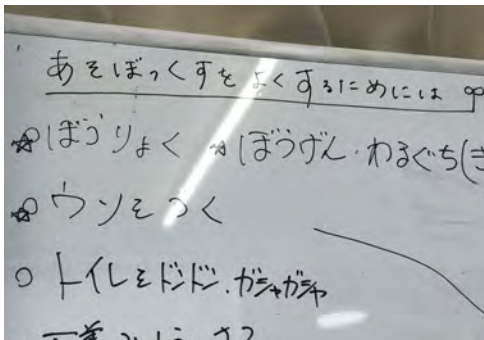 あそぼっくすをよくするためには
☆ぼうりょく ☆ぼうげん・わるぐち(き
☆ウソをつく
○ トイレをドンドン.ガシャガシャ